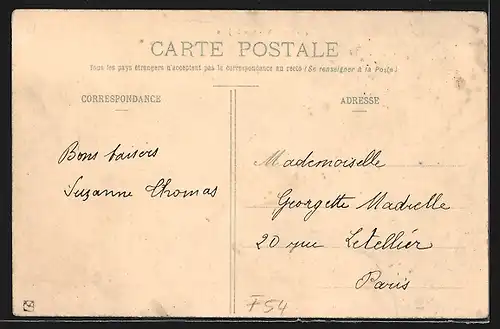 CARTE POSTALE
Tous les pays étrangers n'acceptent pas la correspondance au recto (Se renseigner à la Poste)
CORRESPONDANCE
ADRESSE
Bons baisers
Suzanne Thomas
Mademoiselle
Georgette Madrelle
20 rue Letellier
Paris
F54